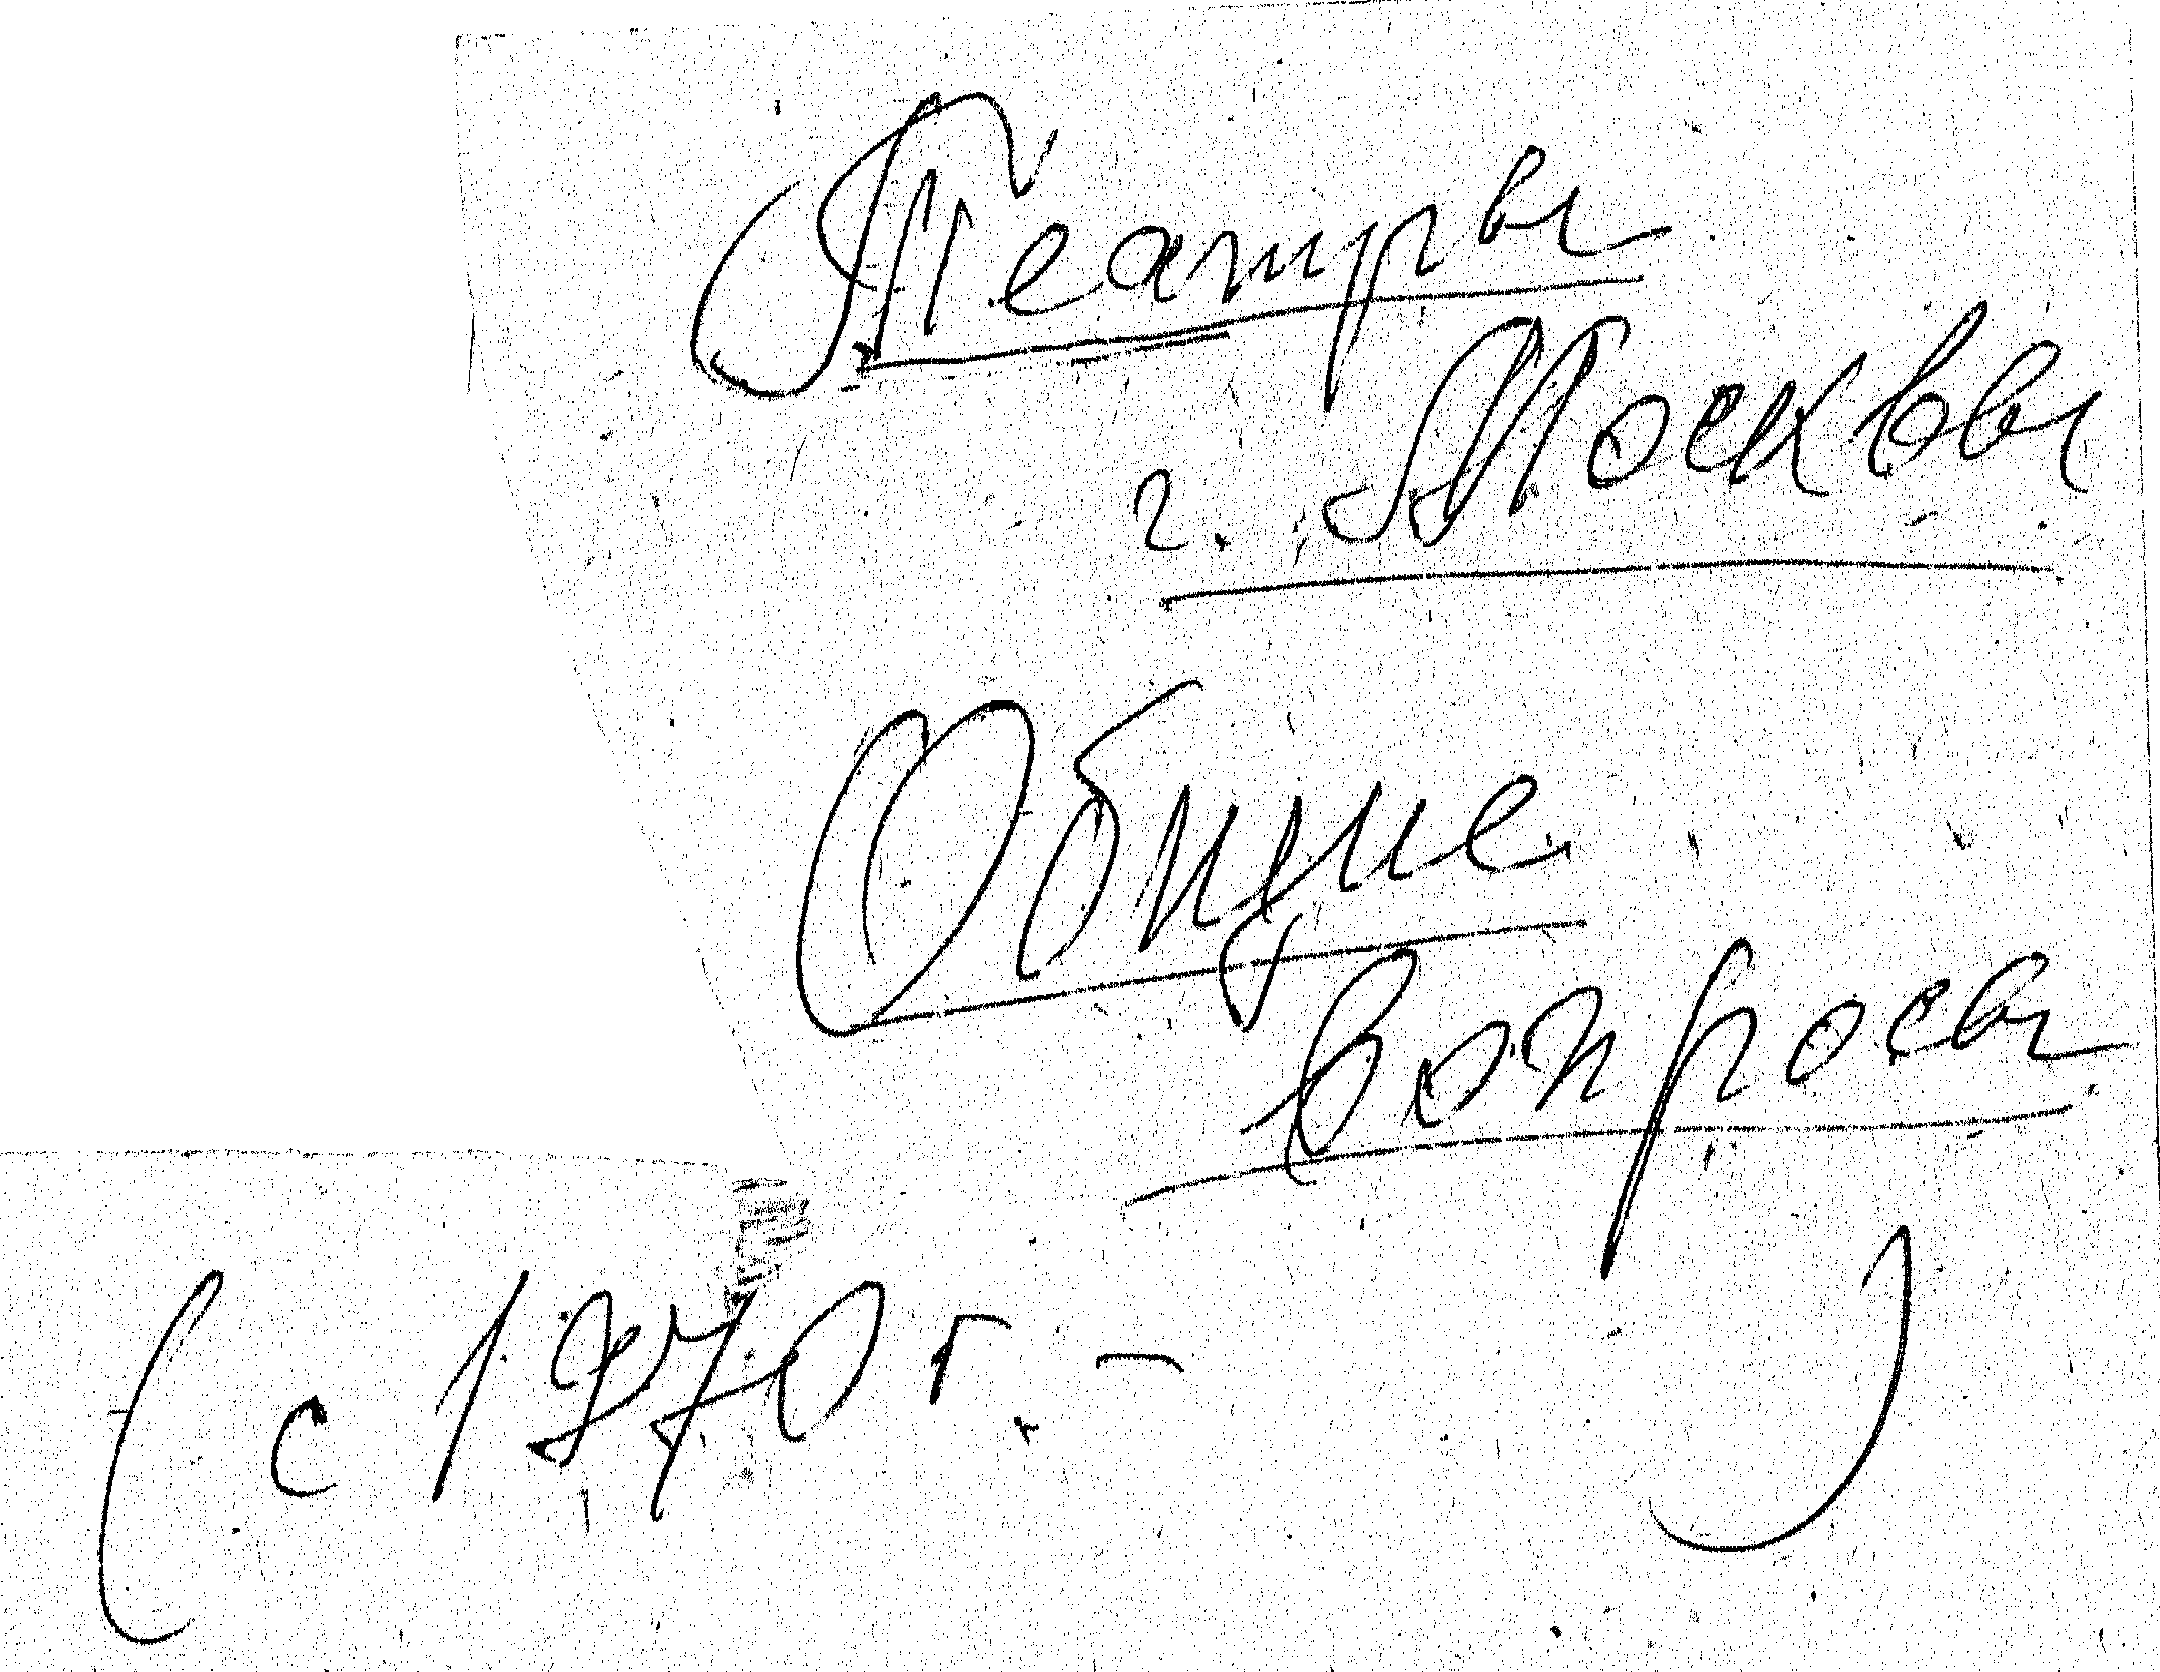 Театры
г. Москвы
Общие
вопросы
(с 1970 г. – )